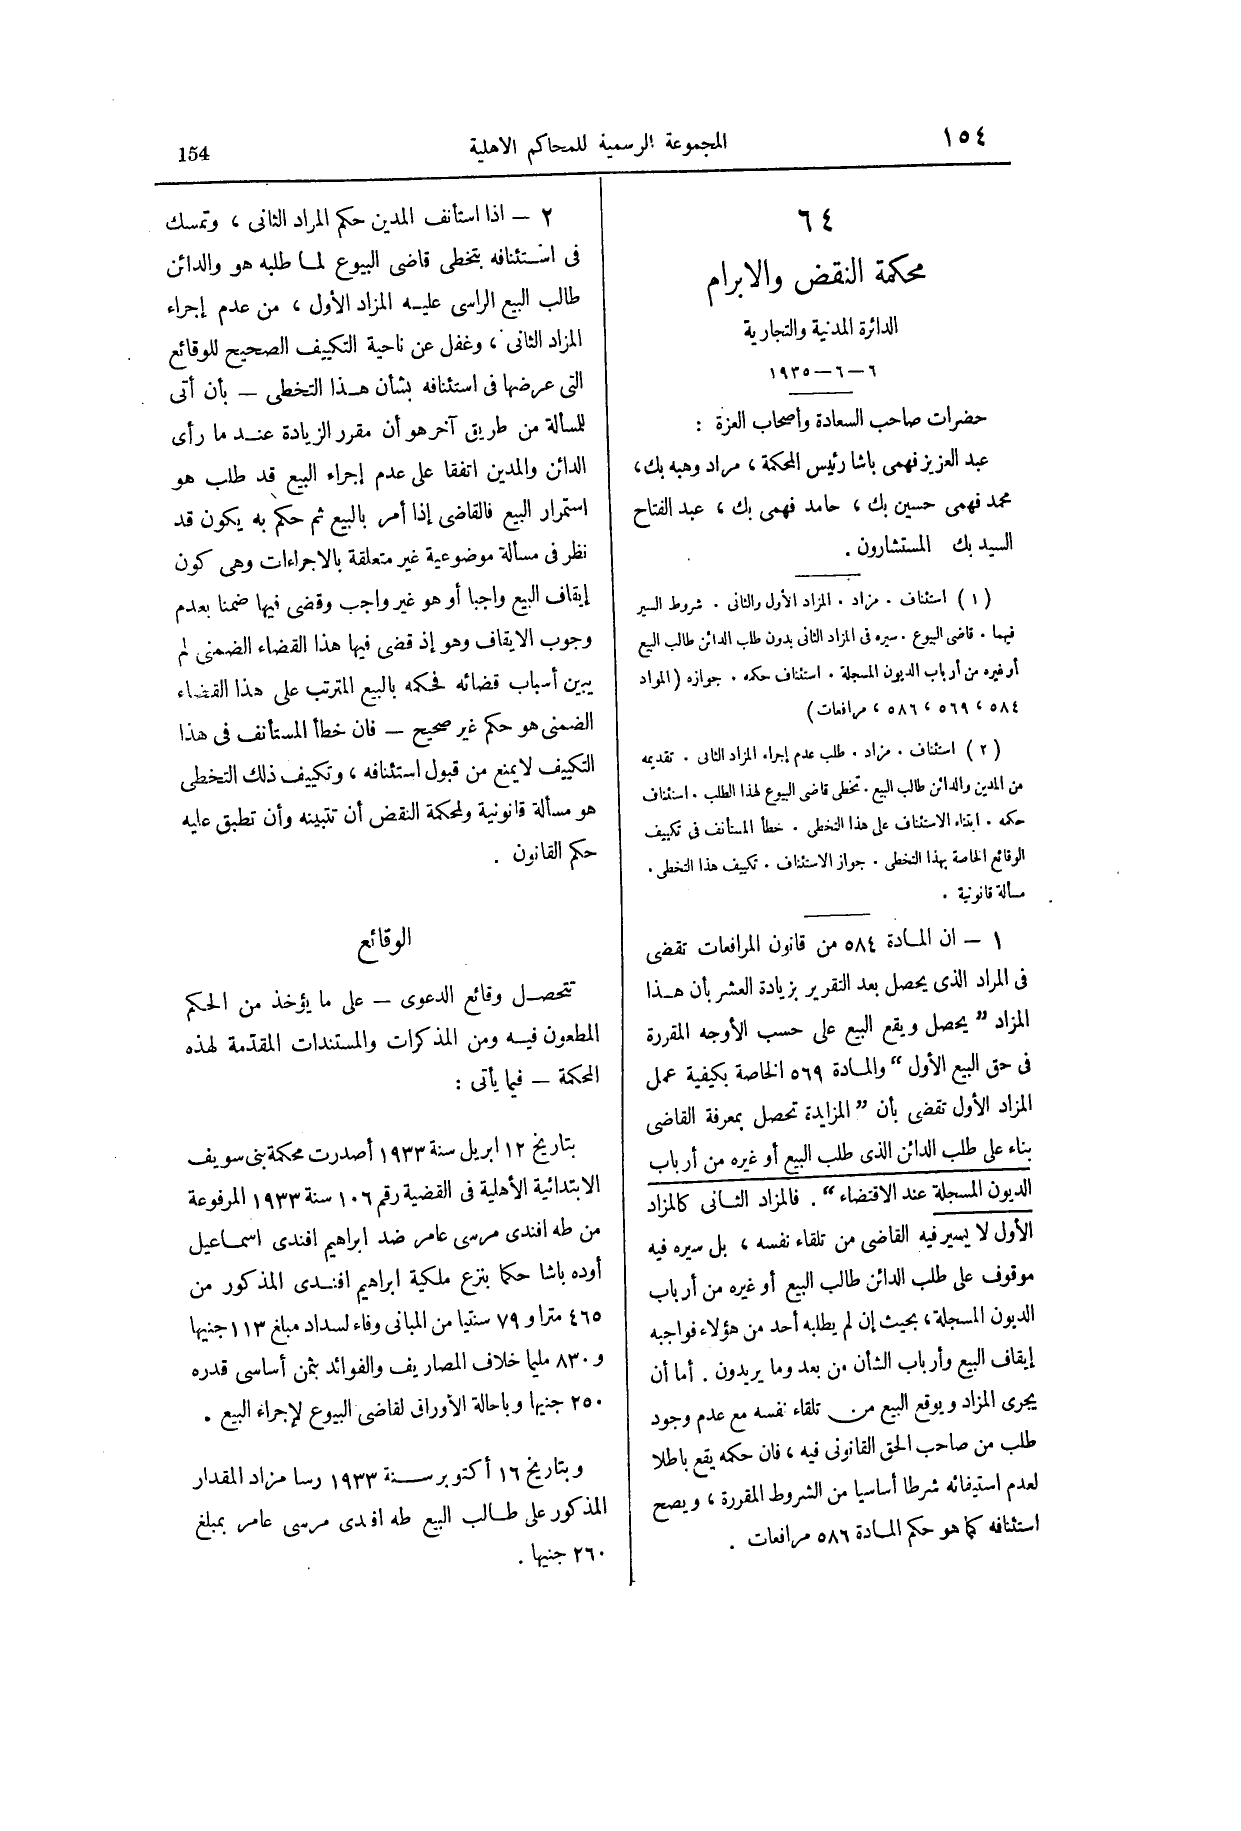 ١٥٤
المجموعة الرسمية للمحاكم الاهلية
154
٦٤
محكمة النقض والابرام
الدائرة المدنية والتجارية
٦-٦-١٩٣٥
حضرات صاحب السعادة وأصحاب العزة :
عبد العزيز فهمى باشا رئيس المحكمة ، مراد وهبه بك ،
محمد فهمى حسين بك ، حامد فهمى بك ، عبد الفتاح
السيد بك المستشارون .
(١) استئناف . مزاد . المزاد الأول والثانى . شروط السير
فيهما . قاضى البيوع . سيره فى المزاد الثانى بدون طلب الدائن طالب البيع
أو غيره من أرباب الديون المسجلة . استئناف حكمه . جوازه (المواد
٥٨٤ ، ٥٦٩ ، ٥٨٦ مرافعات)
(٢) استئناف . مزاد . طلب عدم إجراء المزاد الثانى . تقديمه
من المدين والدائن طالب البيع . تخطى قاضى البيوع لهذا الطلب . استئناف
حكمه . ابتناء الاستئناف على هذا التخطى . خطأ المستأنف فى تكييف
الوقائع الخاصة بهذا التخطى . جواز الاستئناف . تكييف هذا التخطى .
مسألة قانونية .
١ – ان المادة ٥٨٤ من قانون المرافعات تقضى
فى المراد الذى يحصل بعد التقرير بزيادة العشر بأن هذا
المزاد ” يحصل ويقع البيع على حسب الأوجه المقررة
فى حق البيع الأول “ والمادة ٥٦٩ الخاصة بكيفية عمل
المزاد الأول تقضى بأن ” المزايدة تحصل بمعرفة القاضى
بناء على طلب الدائن الذى طلب البيع أو غيره من أرباب
الديون المسجلة عند الاقتضاء “ . فالمزاد الثانى كالمزاد
الأول لا يسير فيه القاضى من تلقاء نفسه ، بل سيره فيه
موقوف على طلب الدائن طالب البيع أو غيره من أرباب
الديون المسجلة ، بحيث إن لم يطلبه أحد من هؤلاء فواجبه
إيقاف البيع وأرباب الشأن من بعد وما يريدون . أما أن
يجرى المزاد ويوقع البيع من تلقاء نفسه مع عدم وجود
طلب من صاحب الحق القانونى فيه ، فان حكمه يقع باطلا
لعدم استيفائه شرطا أساسيا من الشروط المقررة ، ويصح
استئنافه كما هو حكم المادة ٥٨٦ مرافعات .
٢ – اذا استأنف المدين حكم المراد الثانى ، وتمسك
فى استئنافه بتخطى قاضى البيوع لما طلبه هو والدائن
طالب البيع الراسى عليه المزاد الأول ، من عدم إجراء
المزاد الثانى ، وغفل عن ناحية التكييف الصحيح للوقائع
التى عرضها فى استئنافه بشأن هذا التخطى – بأن أتى
للمسألة من طريق آخر هو أن مقرر الزيادة عند ما رأى
الدائن والمدين اتفقا على عدم إجراء البيع قد طلب هو
استمرار البيع فالقاضى إذا أمر بالبيع ثم حكم به يكون قد
نظر فى مسألة موضوعية غير متعلقة بالاجراءات وهى كون
إيقاف البيع واجبا أو هو غير واجب وقضى فيها ضمنا بعدم
وجوب الايقاف وهو إذ قضى فيها هذا القضاء الضمنى لم
يبين أسباب قضائه فحكمه بالبيع المترتب على هذا القضاء
الضمنى هو حكم غير صحيح – فان خطأ المستأنف فى هذا
التكييف لايمنع من قبول استئنافه ، وتكييف ذلك التخطى
هو مسألة قانونية ولمحكمة النقض أن تتبينه وأن تطبق عليه
حكم القانون .
الوقائع
تتحصل وقائع الدعوى – على ما يؤخذ من الحكم
المطعون فيه ومن المذكرات والمستندات المقدّمة لهذه
المحكمة – فيما يأتى :
بتاريخ ١٢ ابريل سنة ١٩٣٣ أصدرت محكمة بنى سويف
الابتدائية الأهلية فى القضية رقم ١٠٦ سنة ١٩٣٣ المرفوعة
من طه افندى مرسى عامر ضد ابراهيم افندى اسماعيل
أوده باشا حكما بنزع ملكية ابراهيم افندى المذكور من
٤٦٥ مترا و ٧٩ سنتيا من المبانى وفاء لسداد مبلغ ١١٣ جنيها
و ٨٣٠ مليما خلاف المصاريف والفوائد بثمن أساسى قدره
٢٥٠ جنيها وباحالة الأوراق لقاضى البيوع لإجراء البيع .
وبتاريخ ١٦ أكتوبر سنة ١٩٣٣ رسا مزاد المقدار
المذكور على طالب البيع طه افندى مرسى عامر بمبلغ
٢٦٠ جنيها .